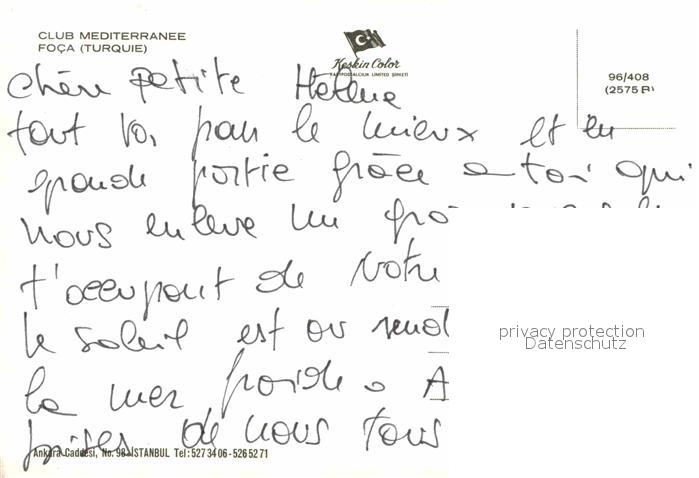 CLUB MEDITERRANEE
FOÇA (TURQUIE)
Keskin Color
KARTPOSTALCILIK LIMITED ŞIRKETI
96/408
(2575 B)
Chère petite Hélène
tout va pour le mieux et en
grande partie grâce a toi qui
nous enlève un gros
t'occupant de notre
le soleil est au rend
la mer froide. A
bises de nous tous
privacy protection
Datenschutz
Ankara Caddesi, No. 98-İSTANBUL Tel: 527 34 06 - 526 52 71